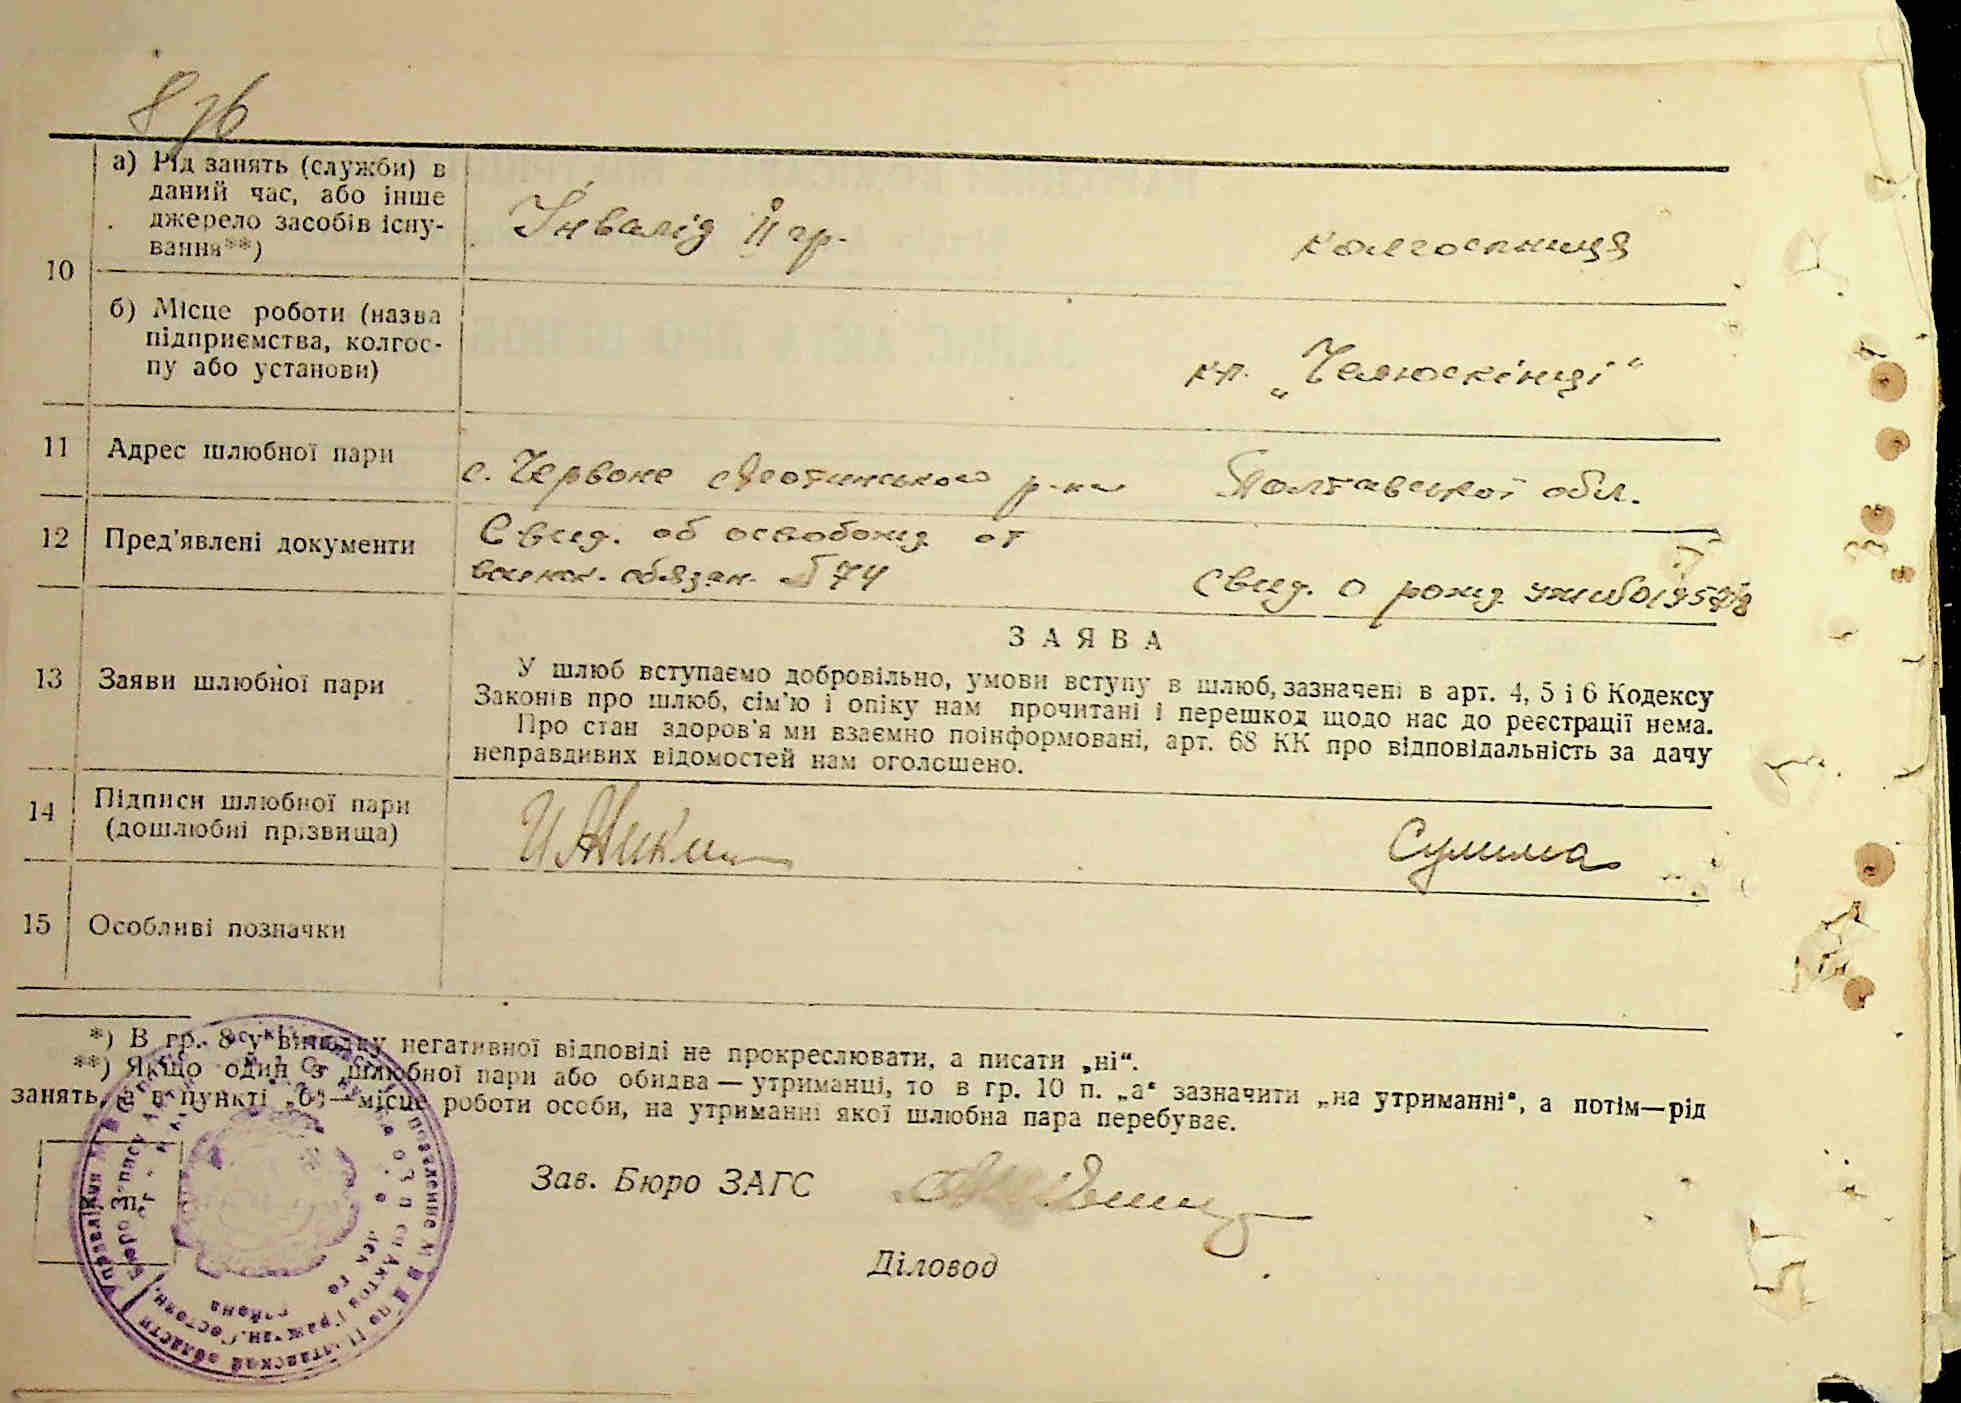 876
10
а) Рід занять (служби) в
даний час, або інше
джерело засобів існу-
вання**)
Інвалід II гр.
колгоспниця
б) Місце роботи (назва
підприємства, колгос-
пу або установи)
кл. „Челюскінці“
11
Адрес шлюбної пари
с. Червоне р-ну Полтавської обл.
12
Пред'явлені документи
Свид. об освобожд от
обязан. 74
Свид. о рожд.
ЗАЯВА
13
Заяви шлюбної пари
У шлюб вступаємо добровільно, умови вступу в шлюб, зазначені в арт. 4, 5 і 6 Кодексу
Законів про шлюб, сім'ю і опіку нам прочитані і перешкод щодо нас до реєстрації нема.
Про стан здоров'я ми взаємно поінформовані, арт. 68 КК про відповідальність за дачу
неправдивих відомостей нам оголошено.
14
Підписи шлюбної пари
(дошлюбні прізвища)
Сулима
15
Особливі позначки
*) В гр. 8 у випадку негативної відповіді не прокреслювати, а писати „ні“.
**) Якщо один з шлюбної пари або обидва — утриманці, то в гр. 10 п. „а“ зазначити „на утриманні“, а потім—рід
занять, а в пункті „б“—місце роботи особи, на утриманні якої шлюбна пара перебуває.
Зав. Бюро ЗАГС
Діловод